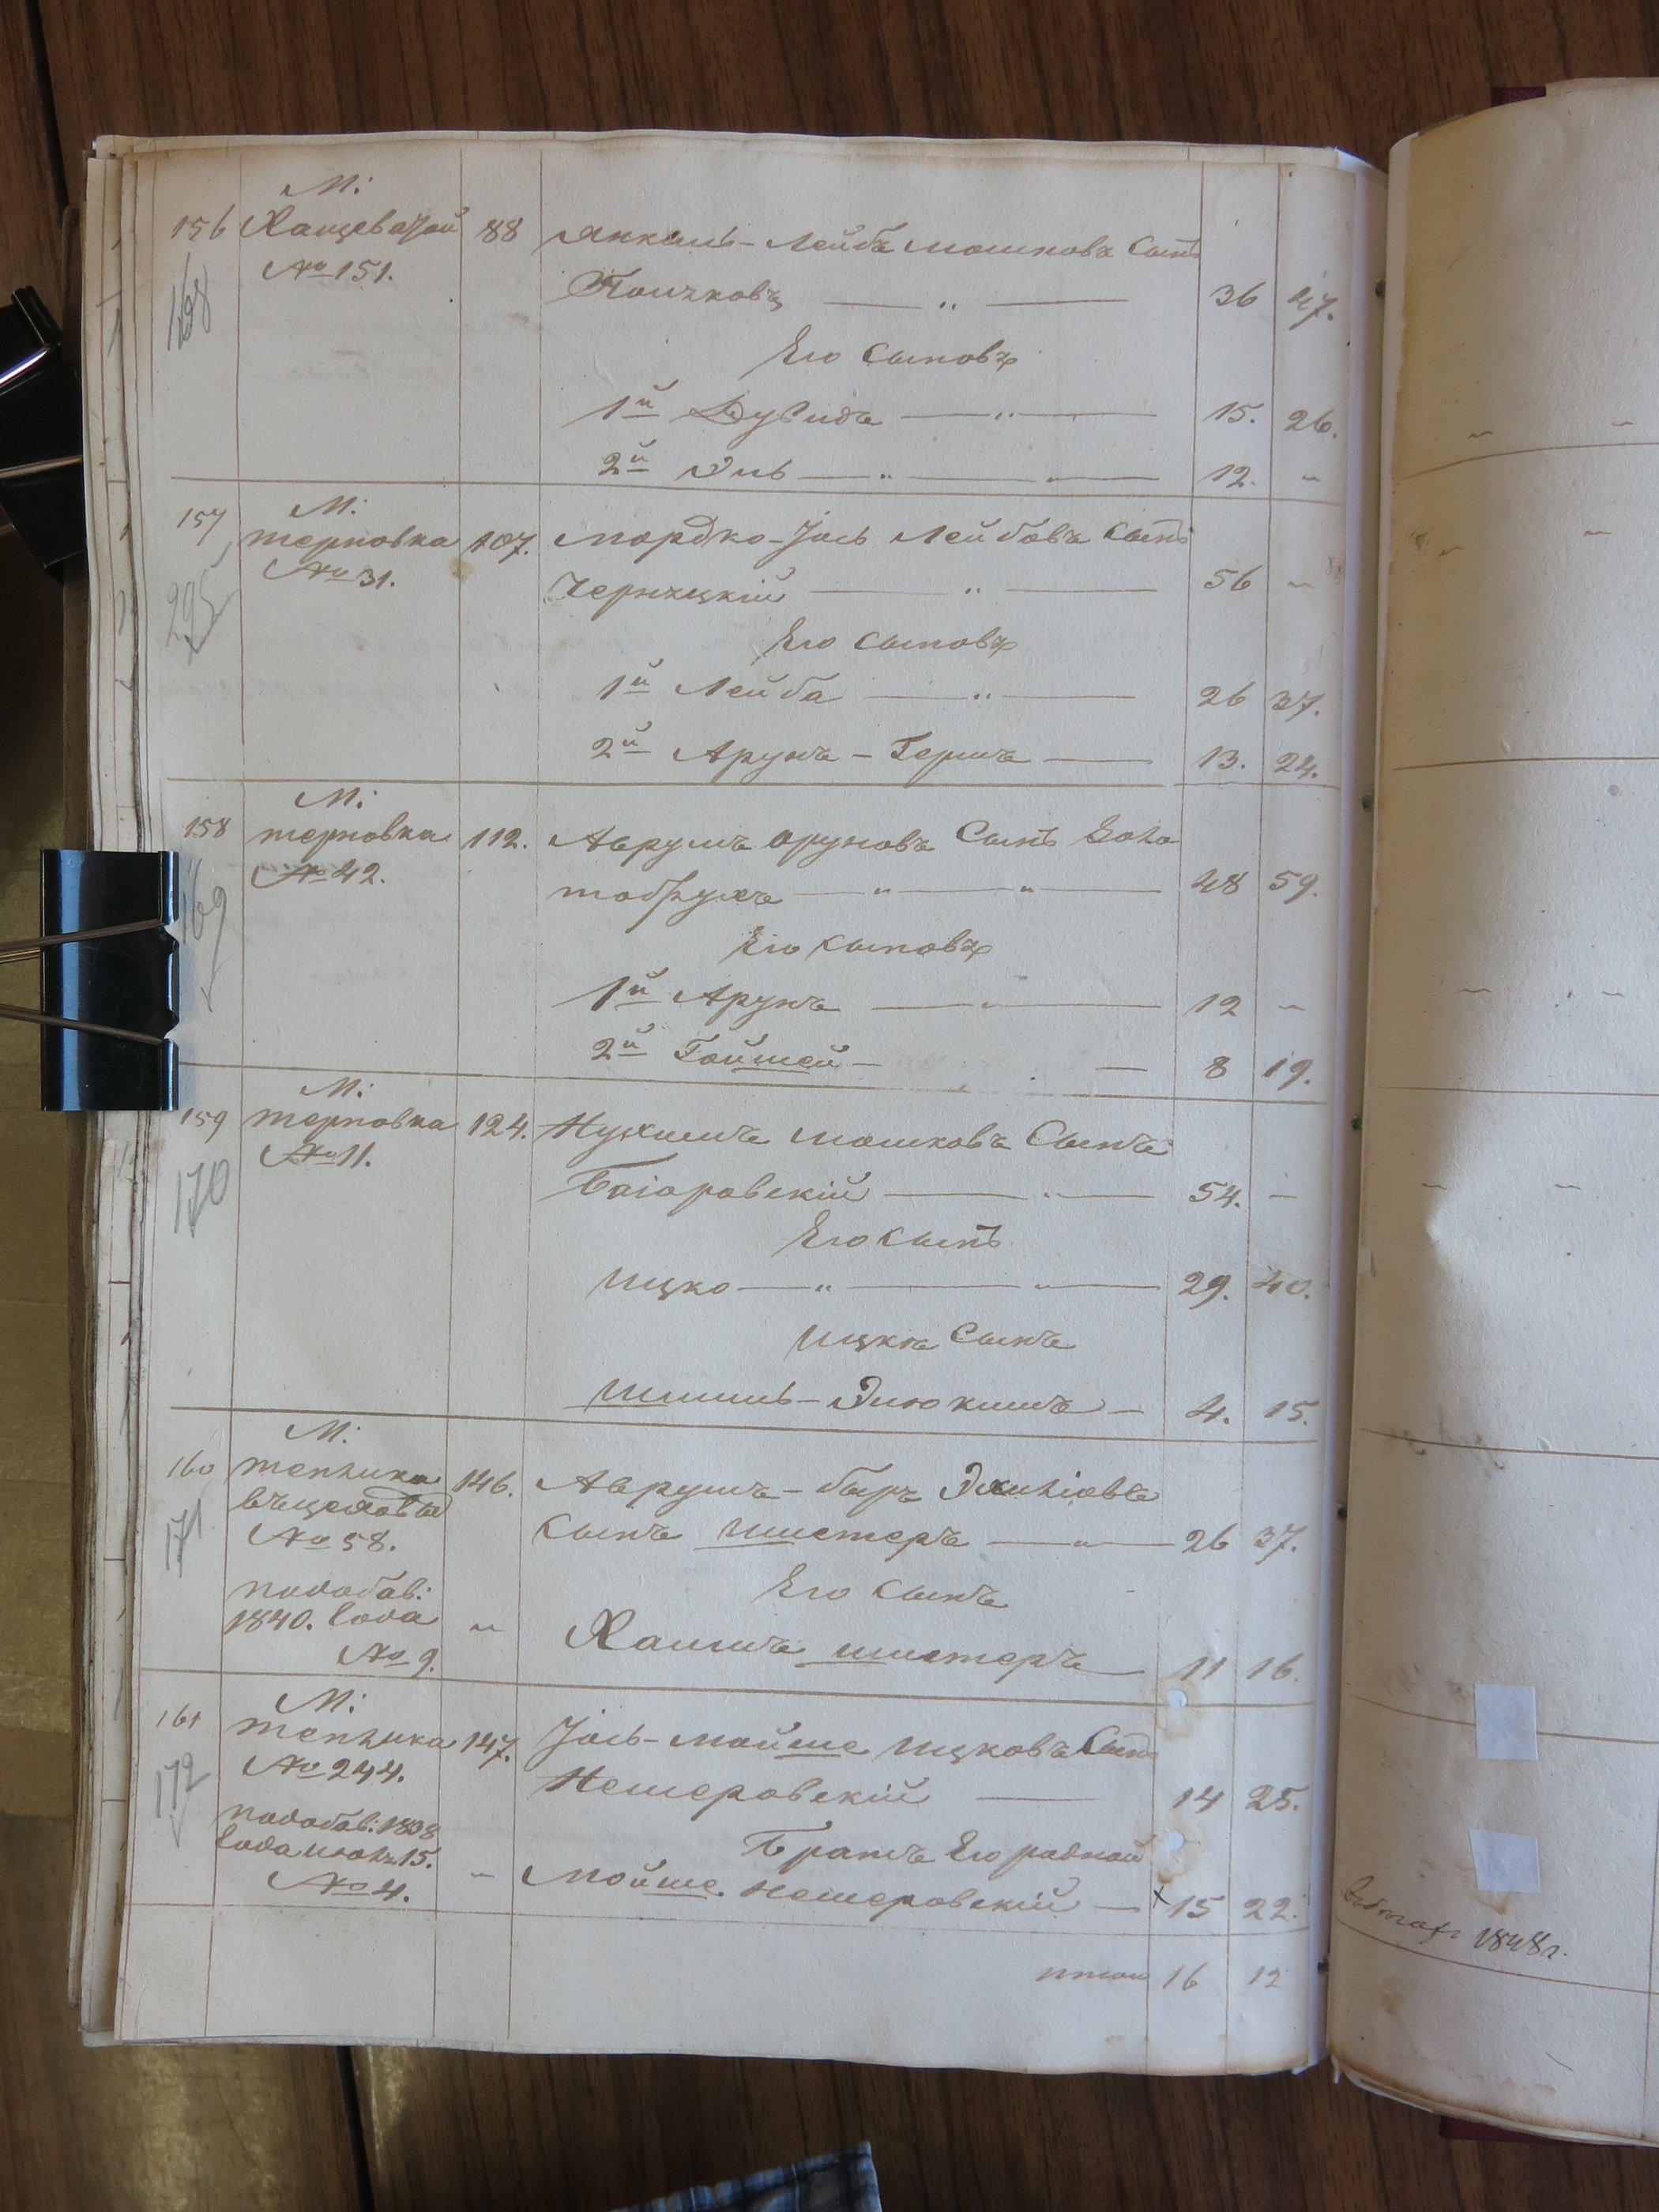 М:
156 Хащеватой 88 Янкель-Лейбъ Мошковъ Сынъ
168 № 151.
Полчковъ — „ — 36 47.
Его Сыновъ
1й Дувидъ — „ — 15. 26.
2й Эль — „ — „ — 12. –
М:
157 терновка 107. Мордко-Іось Лейбовъ Сынъ
295 № 31.
Чернецкій — „ — 56 –
Его Сыновъ
1й Лейба — „ — 26 37.
2й Арунъ – Гершъ — 13. 24.
М:
158 терновка 112. Аврумъ Аруновъ Сынъ Бога
169 № 42.
тобрухъ — „ — „ — 48 59.
Его Сыновъ
1й Арунъ — „ — 12 –
2й Гойшей — — 8 19.
М:
159 терновка 124. Нухимъ Мошковъ Сынъ
170 № 11.
Багоровскій — „ — 54. –
Его Сынъ
Ицко — „ — „ — 29. 40.
Ицка Сынъ
Шмиль-Элюкимъ — 4. 15.
М:
160 теплика 146. Аврумъ-беръ
171 № 58.
Сынъ Шистеръ — „ — 26 37.
Его Сынъ
подобав:
1840. года „ Хаимъ шистеръ — 11 16.
№ 9.
М:
161 теплика 147. Іось-Мойше Ицковъ Сынъ
172 № 244.
Немеровскій — 14 25.
подобав: 1838
Братъ Его родной
года июля 15. – Мойше Немеровскій — × 15 22.
№ 4.
итого 16 12
1848 г.